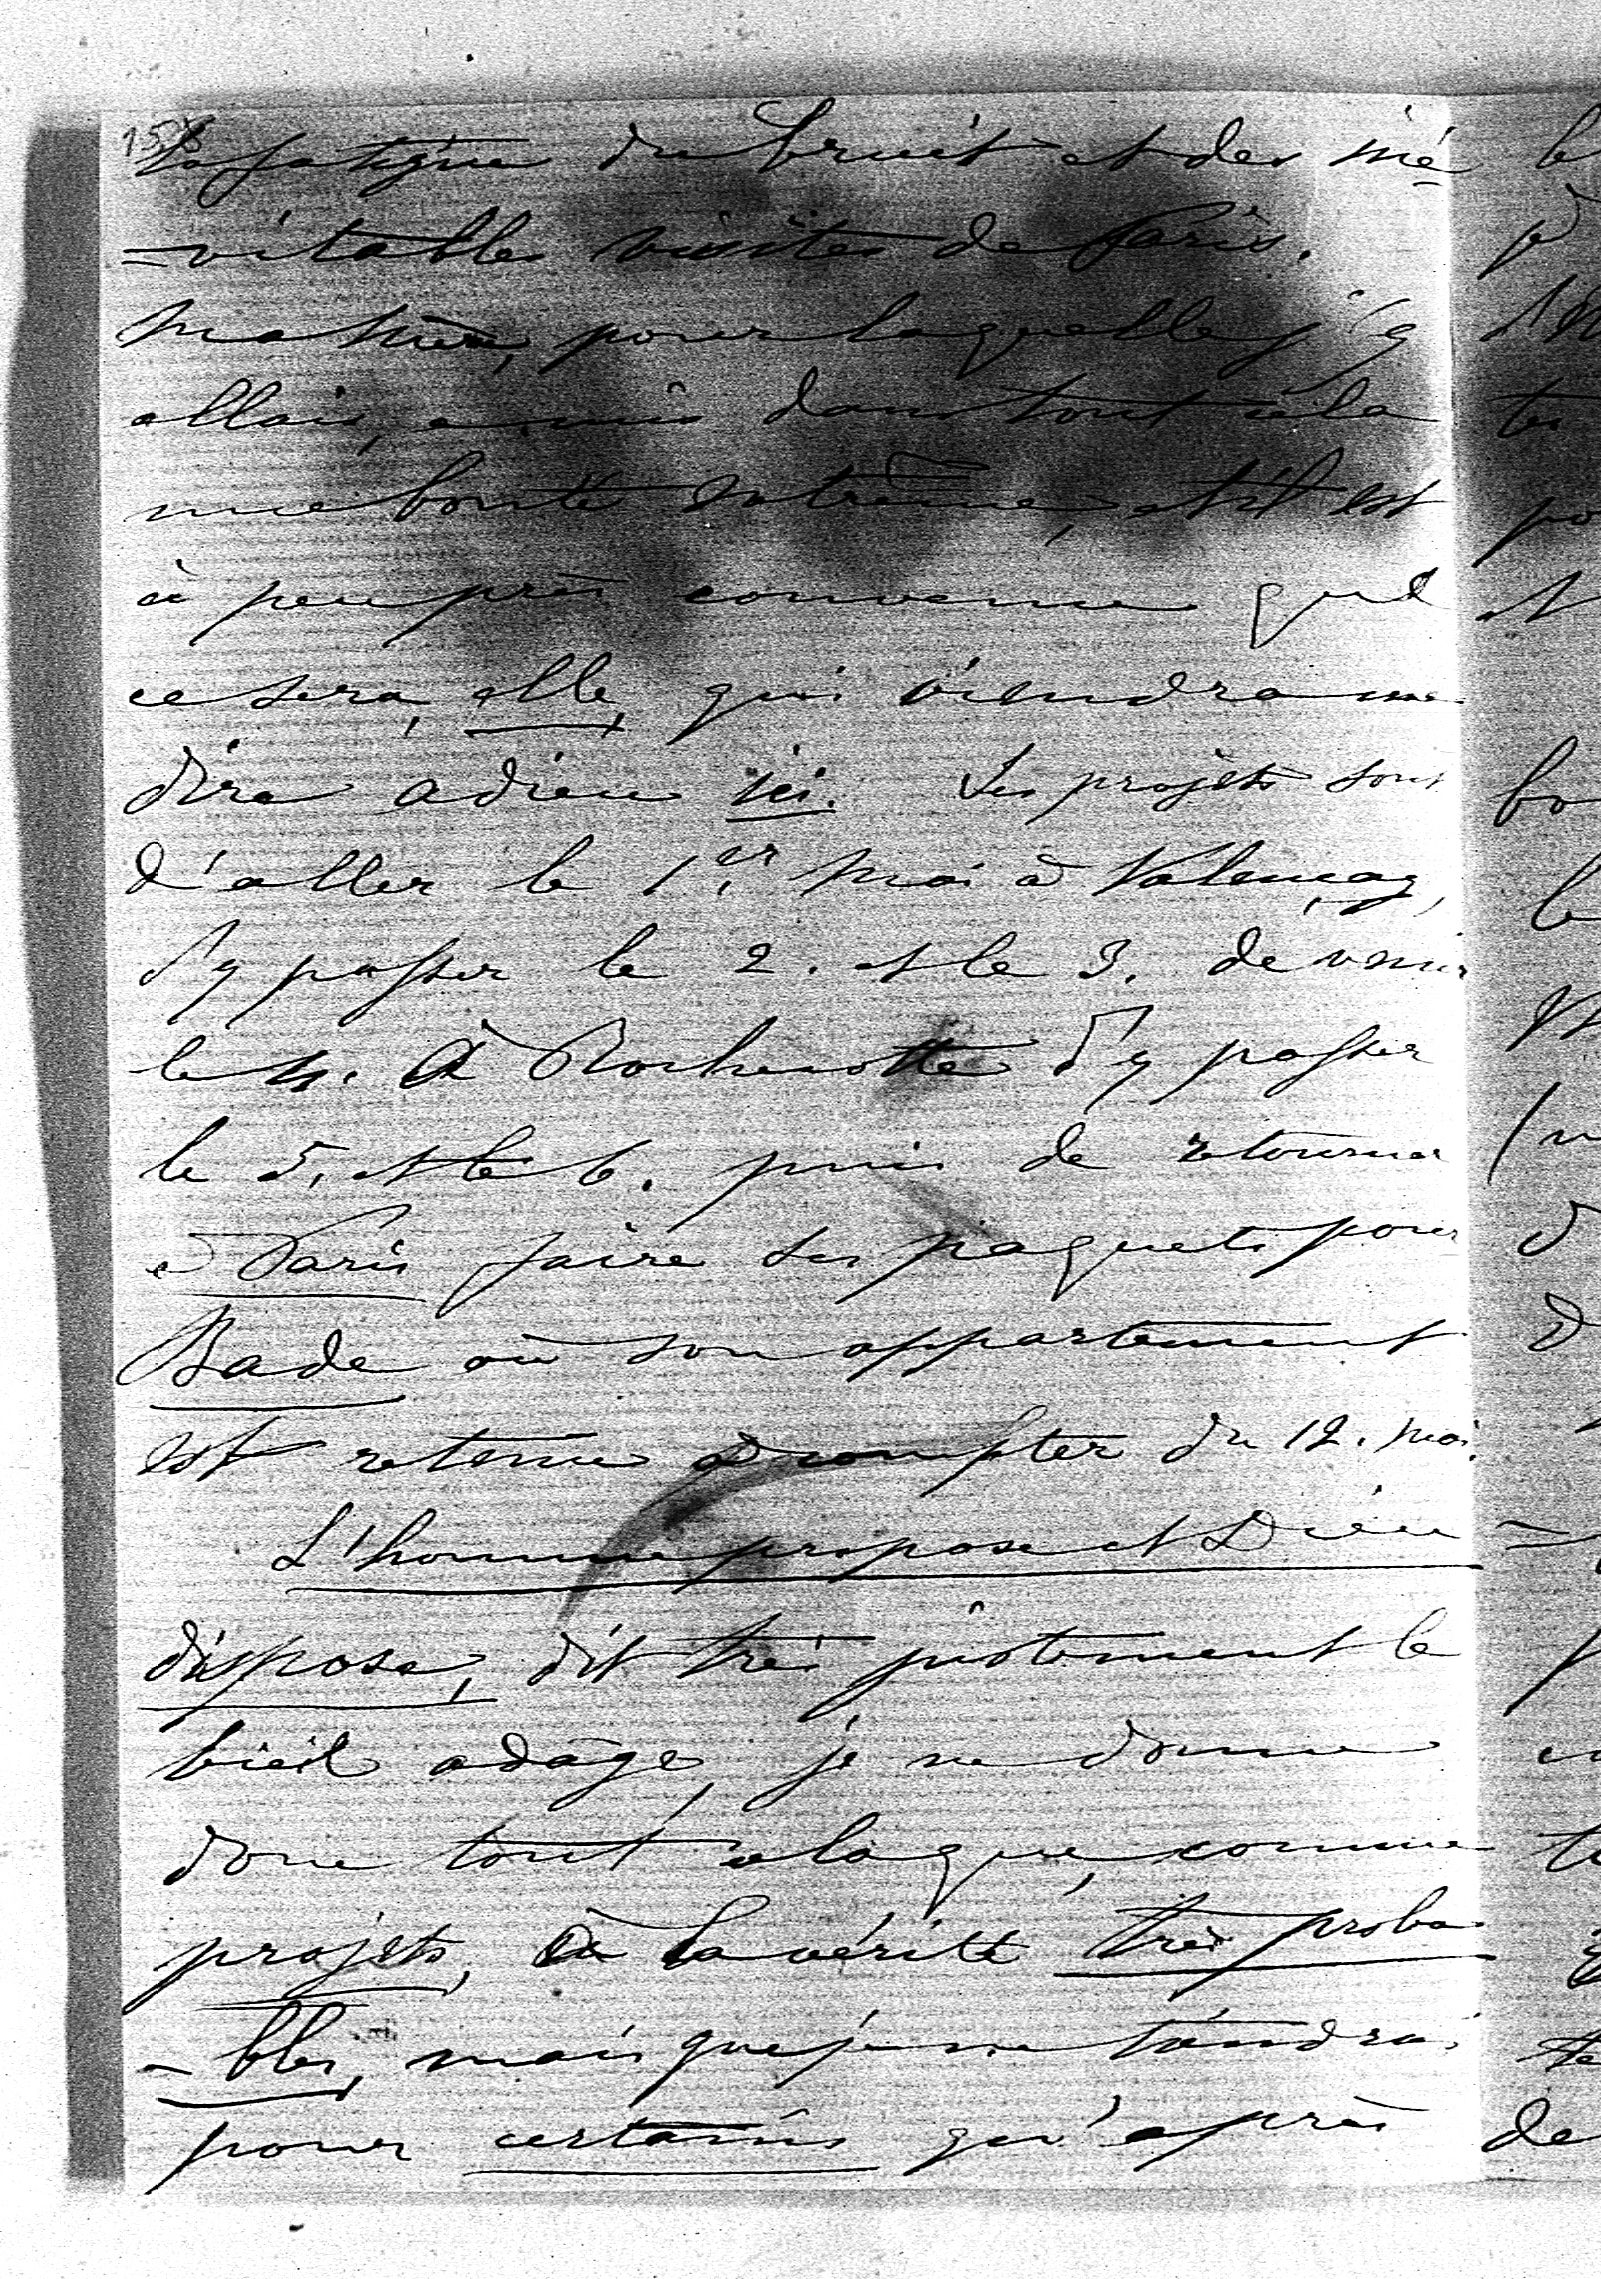 158
la fatigue du bruit et des iné
=vitables visites de Paris.
Ma Mère, pour laquelle j'y
allais, a mis dans tout cela
une bonté extrême, et il est
à peu près convenu que
ce sera, elle, qui viendra me
dire adieu ici. Ses projets sont
d'aller le 1er Mai à Valençay,
d'y passer le 2. et le 3. de venir
le 4. à Rochecotte d'y passer
le 5. et le 6. puis de retourner
à Paris faire ses paquets pour
Bade où son appartement
est retenu à compter du 12. Mai.
L'homme propose et Dieu
dispose, dit très justement le
vieil adage, je ne donne
donc tout cela que, comme
projets, à la vérité très proba
=bles, mais que je ne tiendrai
pour certains qu'après